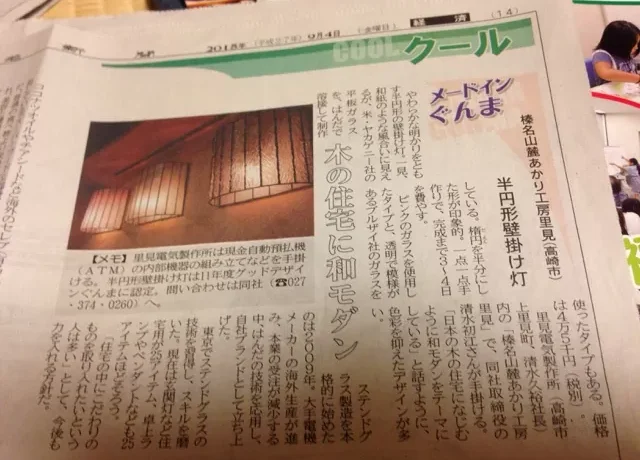 2015年(平成27年)9月4日 (金曜日) 経済 (14)
COOL クール
メードイン
ぐんま
榛名山麓あかり工房里見(高崎市)
半円形壁掛け灯
木の住宅に和モダン
やわらかな明かりをとも
す半円形の壁掛け灯。一見、
和紙のような風合いに見え
るが、米・ヤカゲニー社の
平板ガラス
を、はんだで
溶接して制作
している。楕円を半分にし
た形が印象的。一点一点手
作りで、完成まで3〜4日
を費やす。
ピンクのガラスを使用し
たタイプと、透明で模様が
あるブルザイ社のガラスを
使ったタイプもある。価格
は4万5千円(税別)。
里見電気製作所(高崎市
上里見町、清水久裕社長)
内の「榛名山麓あかり工房
里見」で、同社取締役の
清水初江さんが手掛ける。
「日本の木の住宅になじむ
ように和モダンをテーマに
している」と話すように、
色彩を抑えたデザインが多
い。
ステンドグ
ラス製造を本
格的に始めた
のは2009年。大手電機
メーカーの海外生産が進
み、本業の受注が減少する
中、はんだの技術を応用し、
自社ブランドとして立ち上
げた。
東京でステンドグラスの
技術を習得し、スキルを磨
いた。現在は玄関灯など住
宅用が25アイテム、卓上ラ
ンプやペンダントなども25
アイテムほどそろう。
「住宅の中にこだわりの
ものを取り入れたいという
人は多い」として、今後も
力を入れる方針だ。
【メモ】里見電気製作所は現金自動預払機
(ATM)の内部機器の組み立てなどを手掛
ける。半円形壁掛け灯は11年度グッドデザイ
ンぐんまに認定。問い合わせは同社(☎027
・374・0260)へ。